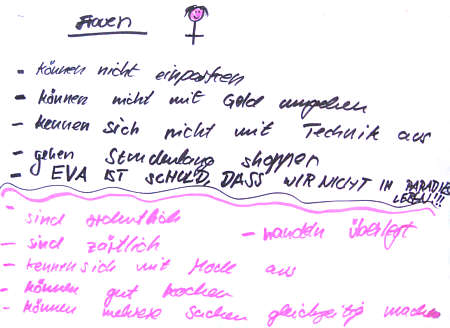 Frauen
- können nicht einparken
- können nicht mit Geld umgehen
- kennen sich nicht mit Technik aus
- gehen Stundenlang shoppen
- EVA IST SCHULD, DASS WIR NICHT IN PARADIES LEBEN!!!
- sind ordentlich
- handeln überlegt
- sind zärtlich
- kennen sich mit Mode aus
- können gut kochen
- können mehrere Sachen gleichzeitig machen